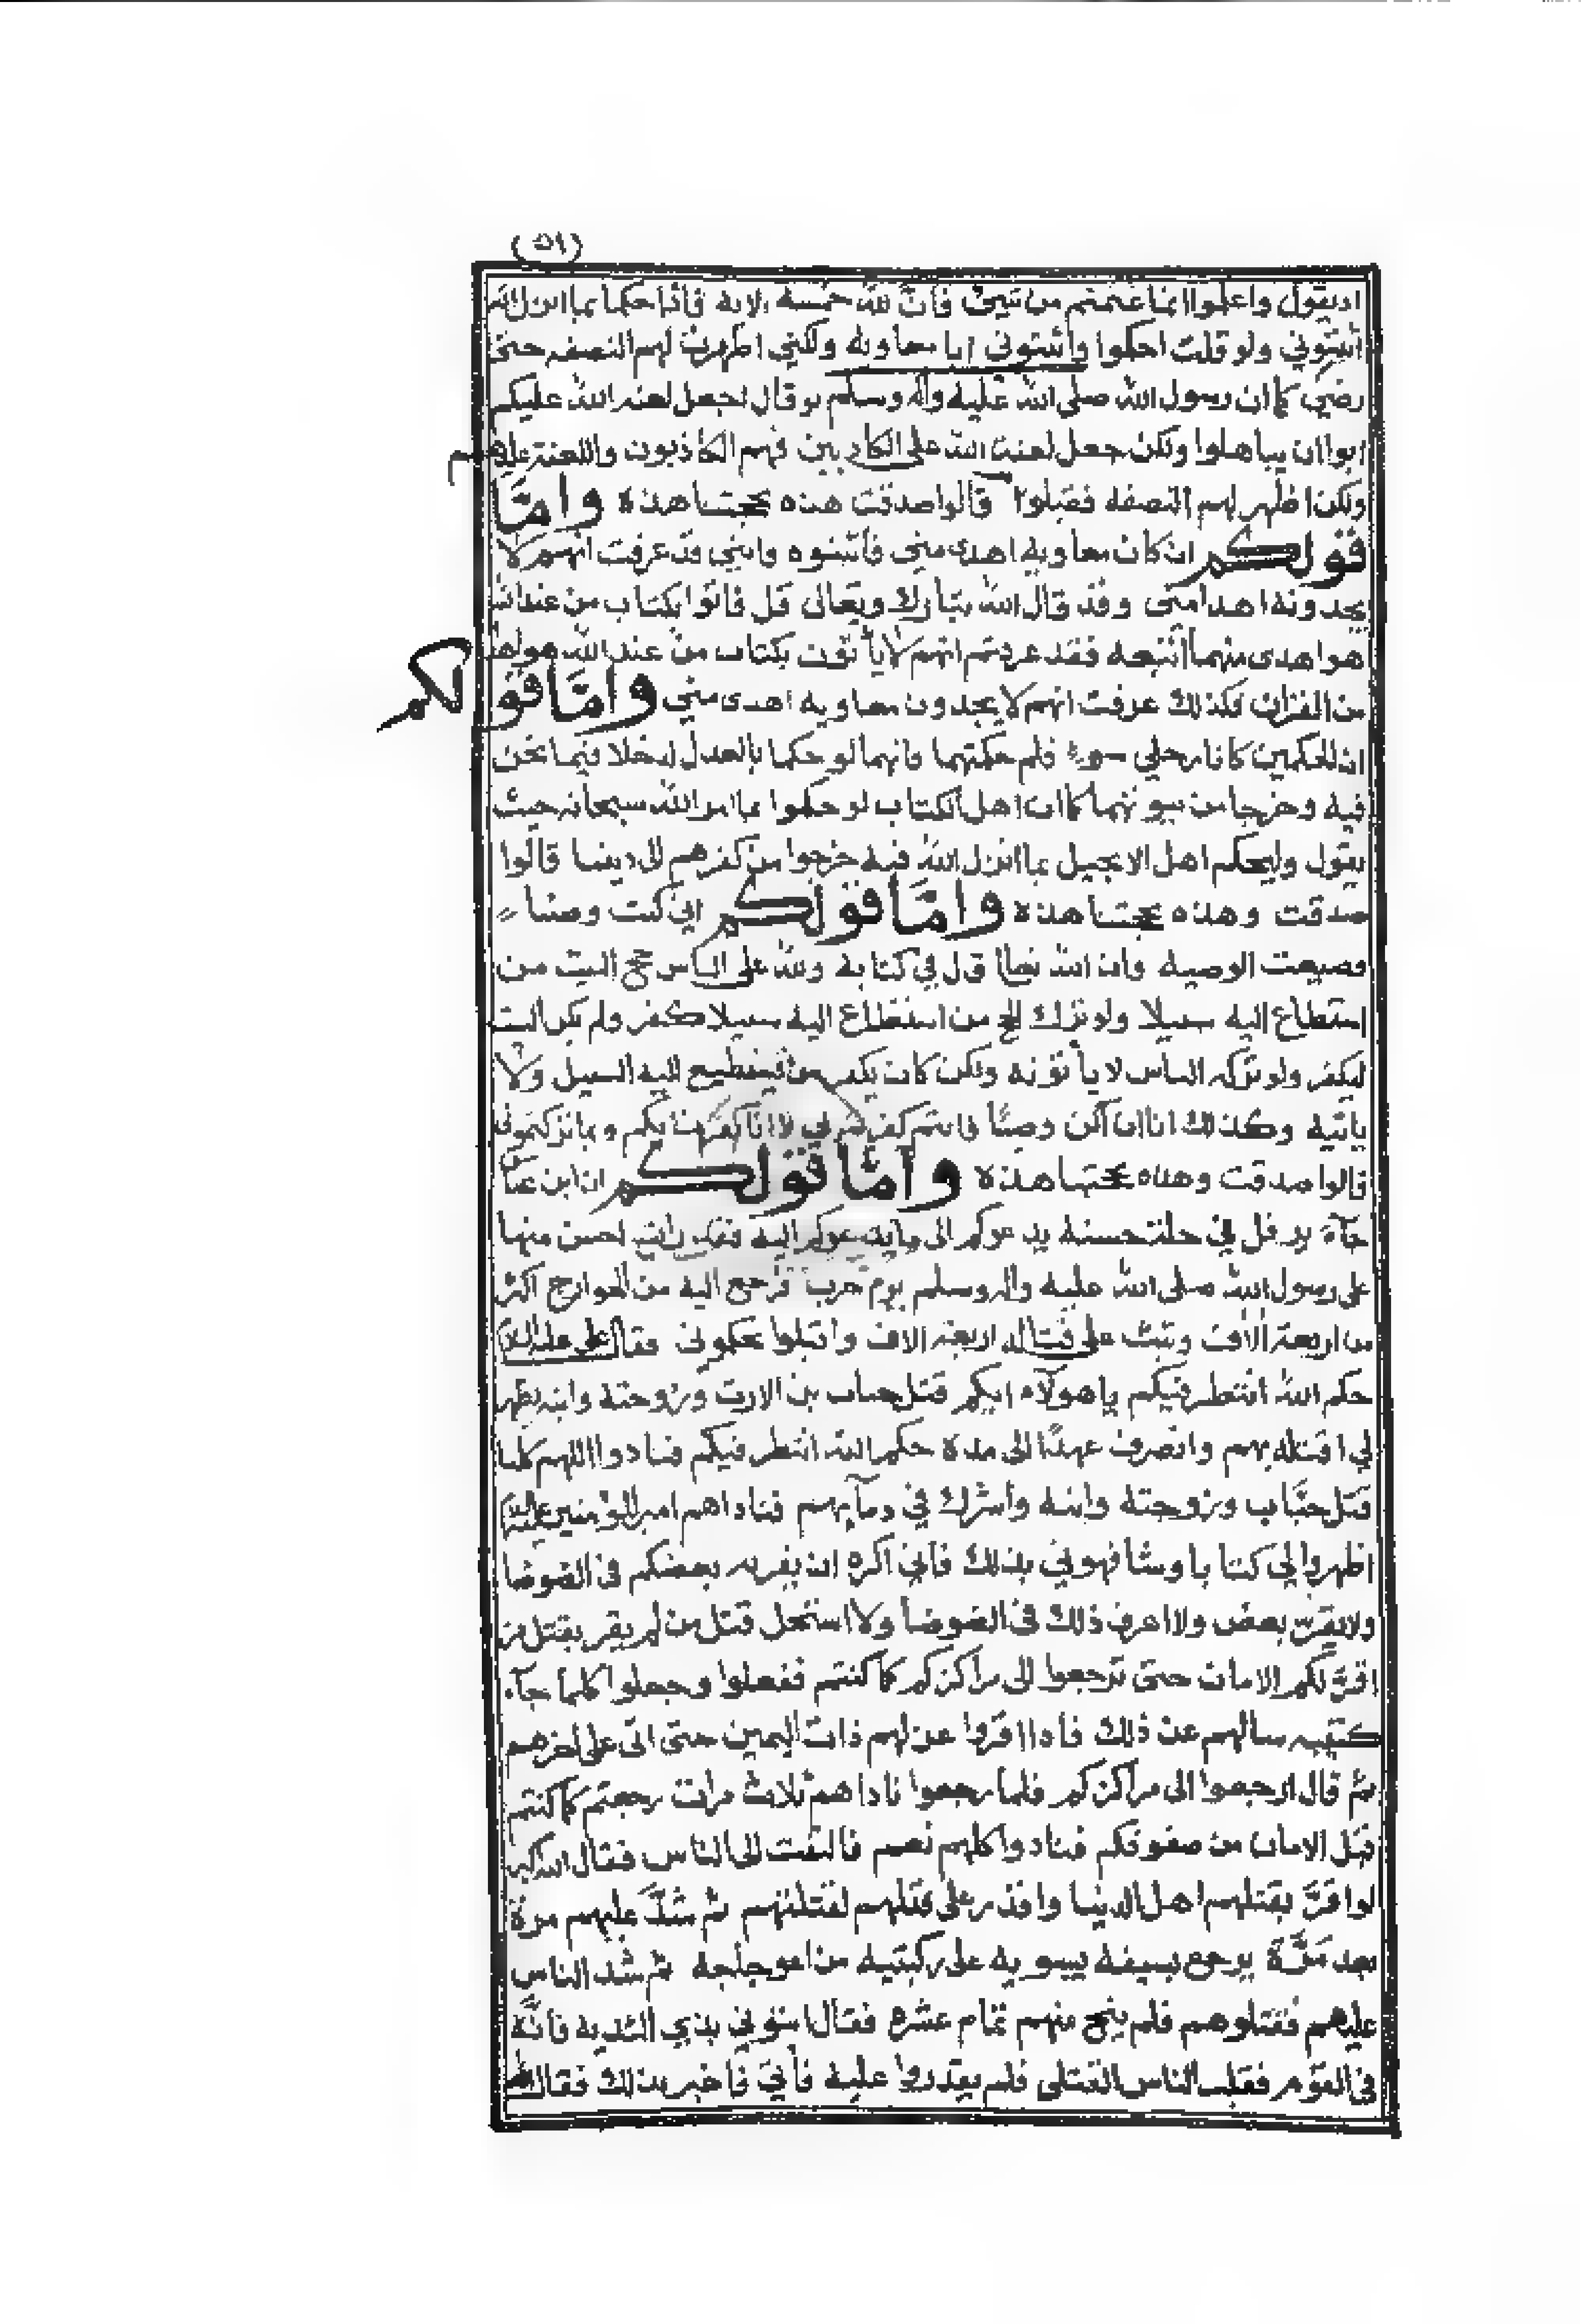 (٥١)
اذ يقول واعلموا انما غنمتم من شيئ فان لله خمسه الايه فاذا حكما بما انزل الله
اثبتوني ولو قلت احكموا واثبتوني ابا معاويه ولكني اظهرت لهم النصفه حتى
رضي كما ان رسول الله صلى الله عليه واله وسلم لو قال نجعل لعنه الله عليكم
ابوا ان يباهلوا ولكن جعل لعنت الله على الكاذبين فهم الكاذبون واللعنة عليهم
ولكن اظهر لهم النصفه فقبلوا قالوا صدقت هذه بحجتنا هذه واما
قولكم ان كان معاويه اهدى مني فاتبعوه وانني قد عرفت انهم لا
يجدونه اهدا مني وقد قال الله تبارك وتعالى قل فاتوا بكتاب من عند الله
هو اهدى منهما اتبعه فقد عرفتم انهم لا يأتون بكتاب من عند الله هو اهدى
من القران فكذلك عرفت انهم لا يجدون معاويه اهدى مني واما قولكم
ان الحكمين كانا رجلي سوء فلم حكمتهما فانهما لو حكما بالعدل لدخلا فيما نحن
فيه وخرجا من سوئهما كما ان اهل الكتاب لو حكموا بما امر الله سبحانه حيث
يقول وليحكم اهل الانجيل بما انزل الله فيه خرجوا من كفرهم الى ديننا قالوا
صدقت وهذه بحجتنا هذه واما قولكم اني كنت وصيا
فضيعت الوصيه وان الله تعالى قال في كتابه ولله على الناس حج البيت من
استطاع اليه سبيلا ولو ترك الحج من استطاع اليه سبيلا كفر ولم يكن البيت
ليكفر ولو تركه الناس لا يأتونه ولكن كان يكفر من يستطيع اليه السبيل ولا
ياتيه وكذلك انا ان اكن وصيا فانتم كفرتم بي لا انا كفرت بكم وبما تركتموني
قالوا صدقت وهذه بحجتنا هذه واما قولكم ان ابن عباس
جآء يرفل في حلة حسنه يدعوكم الى ما يدعوكم اليه فقد رايت احسن منها
على رسول الله صلى الله عليه واله وسلم يوم حرب فرجع اليه من الخوارج اكثر
من اربعة الاف وثبت على قتاله اربعة الاف واقبلوا يحكمون فقال علي عليه السلام
حكم الله انتظر فيكم يا هولآء ايكم قتل خباب بن الارت وزوجته وابنه يظهر
لي اقتله بهم وانصرف عهدًا الى مدة حكم الله انتظر فيكم فنادوا اللهم كلنا
قتل خبّاب وزوجته وابنه واشرك في دمآيهم فناداهم امير المومنين عليه السلام
اظهروا لي كتايبا وشافهوني بذلك فاني اكره ان يقر به بعضكم في الضوضا
ولا يقر بعض ولا اعرف ذلك في الضوضا ولا استحل قتل من لم يقر بقتل من
اقرّ لكم الامان حتى ترجعوا الى مراكزكم كما كنتم ففعلوا وجعلوا كلما جآء
كتيبه سالهم عن ذلك فاذا اقروا عزلهم ذات اليمين حتى اتى على اخرهم
ثم قال ارجعوا الى مراكزكم فلما رجعوا ناداهم ثلاث مرات رجعتم كما كنتم
قبل الامان من صفوفكم فنادوا كلهم نعم فالتفت الى الناس فقال الله اكبر
لو اقرّ بقتلهم اهل الدنيا واقدر على قتلهم لقتلتهم ثم شدّ عليهم مرة
بعد مَرَّة يرجع بسيفه يسويه على ركبتيه من اعوجاجه ثم شد الناس
عليهم فقتلوهم فلم ينج منهم تمام عشره فقال اتوني بذي الثديه فانّه
في القوم فقلب الناس القتلى فلم يقدروا عليه فأتي فاخبر بذلك فقال